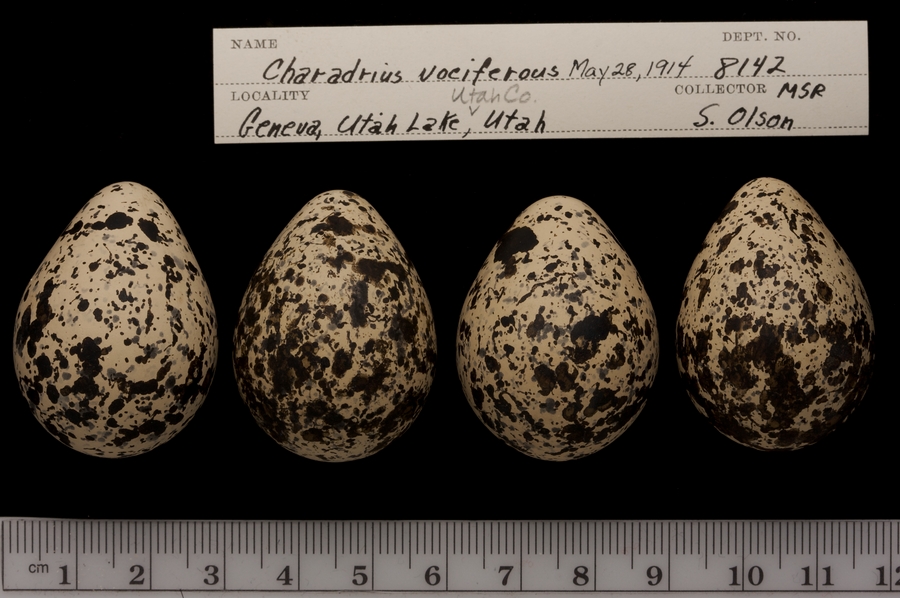 NAME DEPT. NO.
Charadrius vociferous May 28, 1914 8142
LOCALITY Utah Co. COLLECTOR MSR
Geneva, Utah Lake, Utah S. Olson
cm 1 2 3 4 5 6 7 8 9 10 11 12